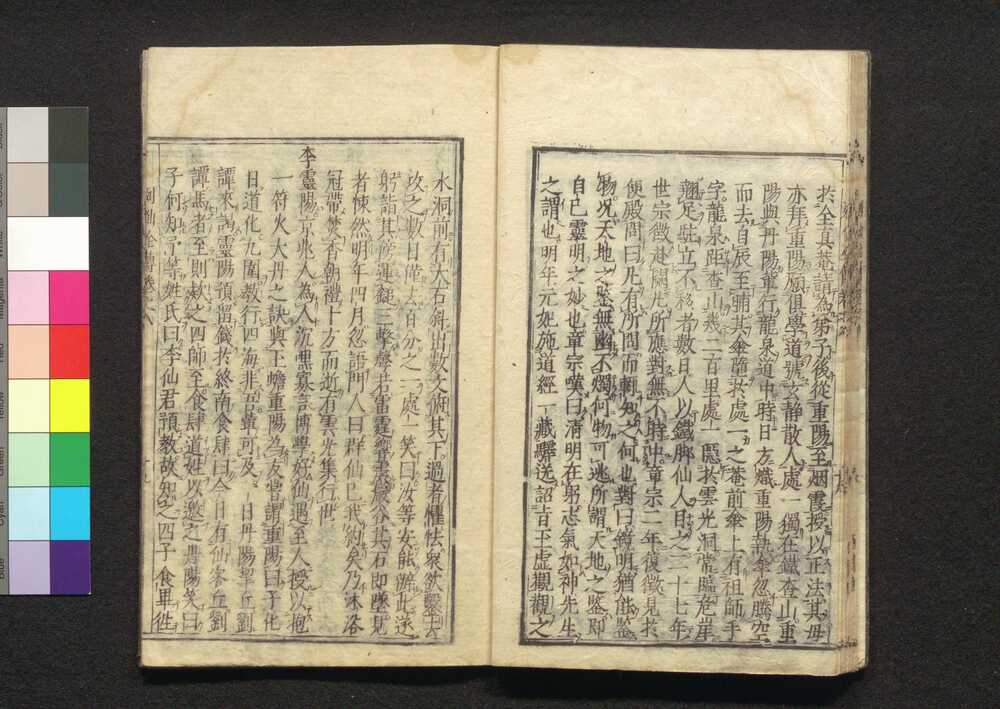 於全真菴請為弟子後從重陽至烟霞授以正法其母
亦拜重陽願俱學道號玄静散人處一獨在鐵查山重
陽與丹陽輩行龍泉道中時日方熾重陽執傘忽騰空
而去自辰至晡其傘墮於處一之菴前傘上有祖師手
字龍泉距查山幾二百里處一隱於雲光洞常臨危崖
翹足壁立不移者數日人以鐵脚仙人目之二十七年
世宗徵赴闕凡所應對無不時中章宗二年復徵見於
便殿問曰凡有所問而輒知之何也對曰鏡明猶能鑑
物况天地之鑒無幽不燭何物可逃所謂天地之鑒即
自己靈明之妙也章宗嘆曰清明在躬志氣如神先生
之謂也明年元妃施道經一藏驛送詔旨玉虚觀觀之
水洞前有大石斜出數丈俯其下過者懼怯衆欲鑿去
攻之數日僅去百分之一處一笑曰汝等安能濟此遂
躬詣其傍運鎚三擊聲若雷霆響震嚴谷其石即墜見
者悚然明年四月忽語門人曰群仙已我約矣乃沐浴
冠帶焚香朝禮十方而逝有雲光集行世
李靈陽京兆人為人沉黙寡言博學好仙遇至人授以抱
一符火大丹之訣與王蟾重陽為友嘗謂重陽曰子他
日道化九圍教行四海非吾輩可及一日丹陽挈丘劉
譚來訪靈陽預留錢於終南食肆曰今日有仙客丘劉
譚馬者至則欵之四師至食肆道姓以邀之丹陽笑曰
子何知予等姓氏曰李仙君預教故知之四子食畢往